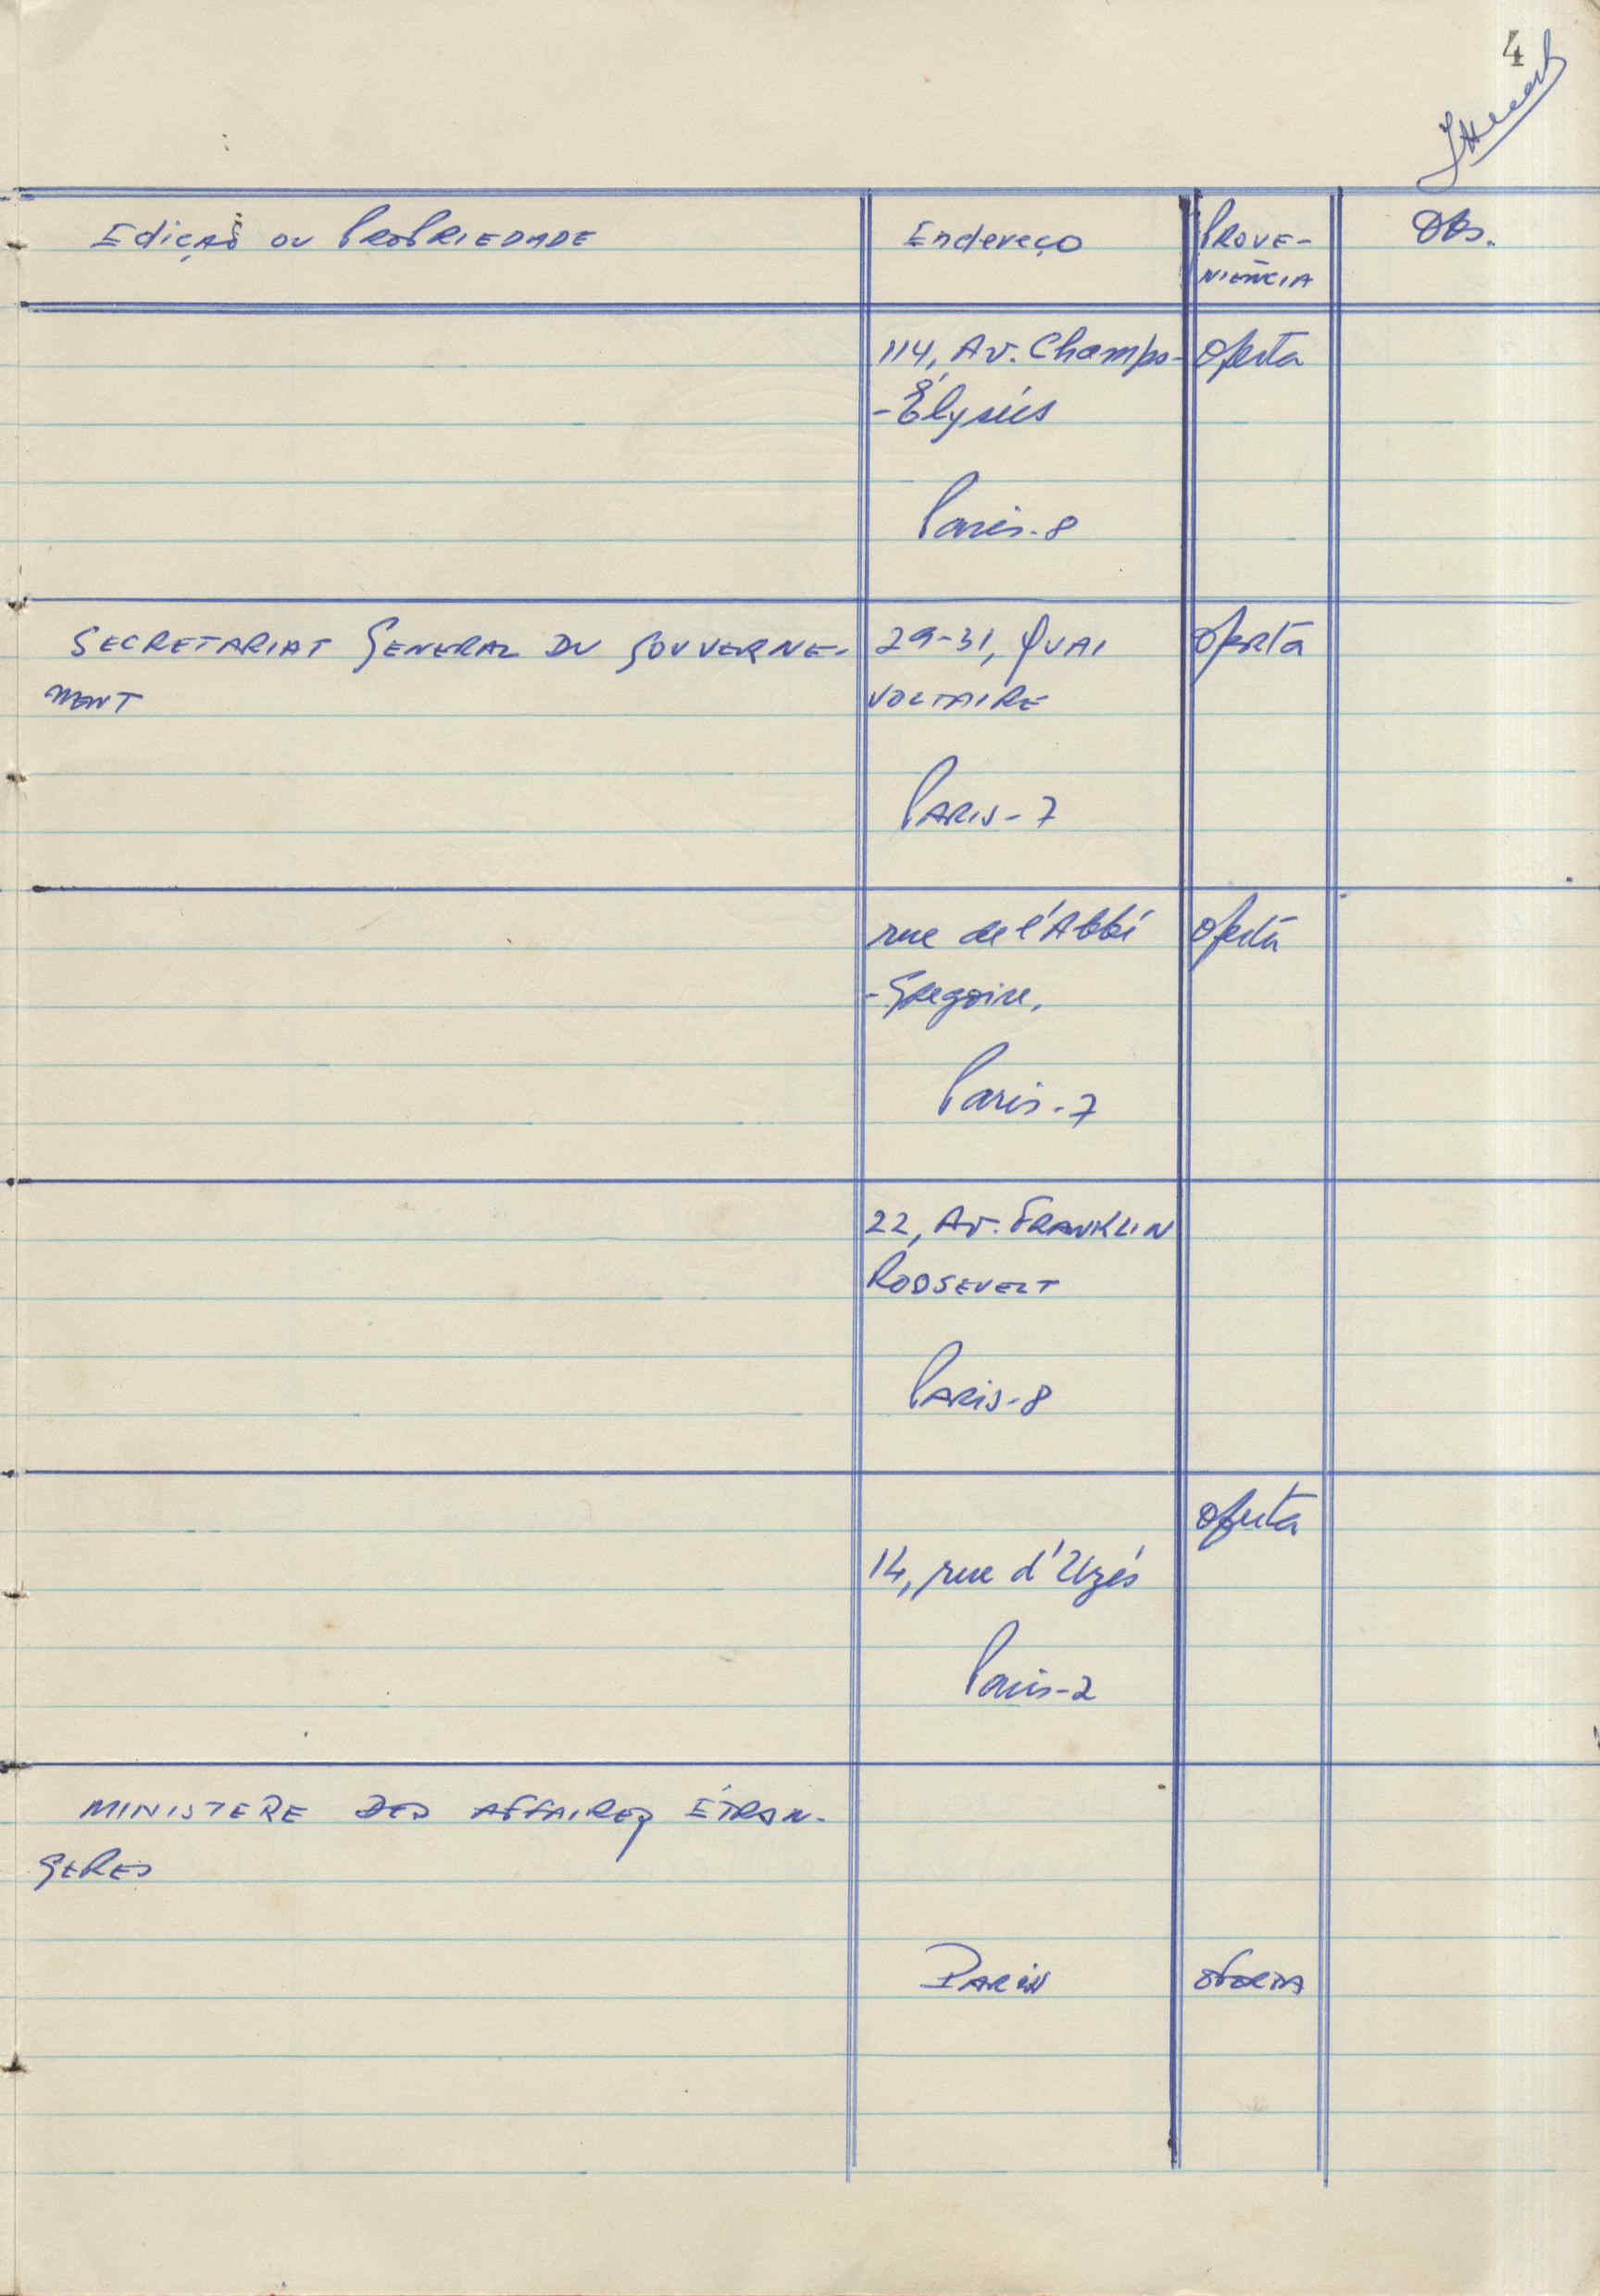 4
Edição ou PROPRIEDADE Endereço PROVE- Obs.
NIÊNCIA
114, Av. Champs- Oferta
-Élysées
Paris-8
SECRETARIAT GENERAL DU GOUVERNE- 29-31, QUAI Oferta
MENT VOLTAIRE
PARIS-7
rue de l'Abbé Oferta
-Gregoire,
Paris-7
22, Av. FRANKLIN
ROOSEVELT
PARIS-8
Oferta
14, rue d'Uzés
Paris-2
MINISTERE DES AFFAIRES ÉTRAN-
GERES
PARIS OFERTA